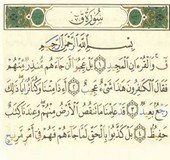 سُورَةُ ق
بِسْمِ اللَّهِ الرَّحْمَٰنِ الرَّحِيمِ
قٓ وَالْقُرْءَانِ الْمَجِيدِ ۝ بَلْ عَجِبُوٓا أَن جَآءَهُم مُّنذِرٌ مِّنْهُمْ
فَقَالَ الْكَٰفِرُونَ هَٰذَا شَىْءٌ عَجِيبٌ ۝ أَءِذَا مِتْنَا وَكُنَّا تُرَابًا ذَٰلِكَ
رَجْعٌۢ بَعِيدٌ ۝ قَدْ عَلِمْنَا مَا تَنقُصُ الْأَرْضُ مِنْهُمْ وَعِندَنَا كِتَٰبٌ
حَفِيظٌۢ ۝ بَلْ كَذَّبُوا بِالْحَقِّ لَمَّا جَآءَهُمْ فَهُمْ فِىٓ أَمْرٍ مَّرِيجٍ